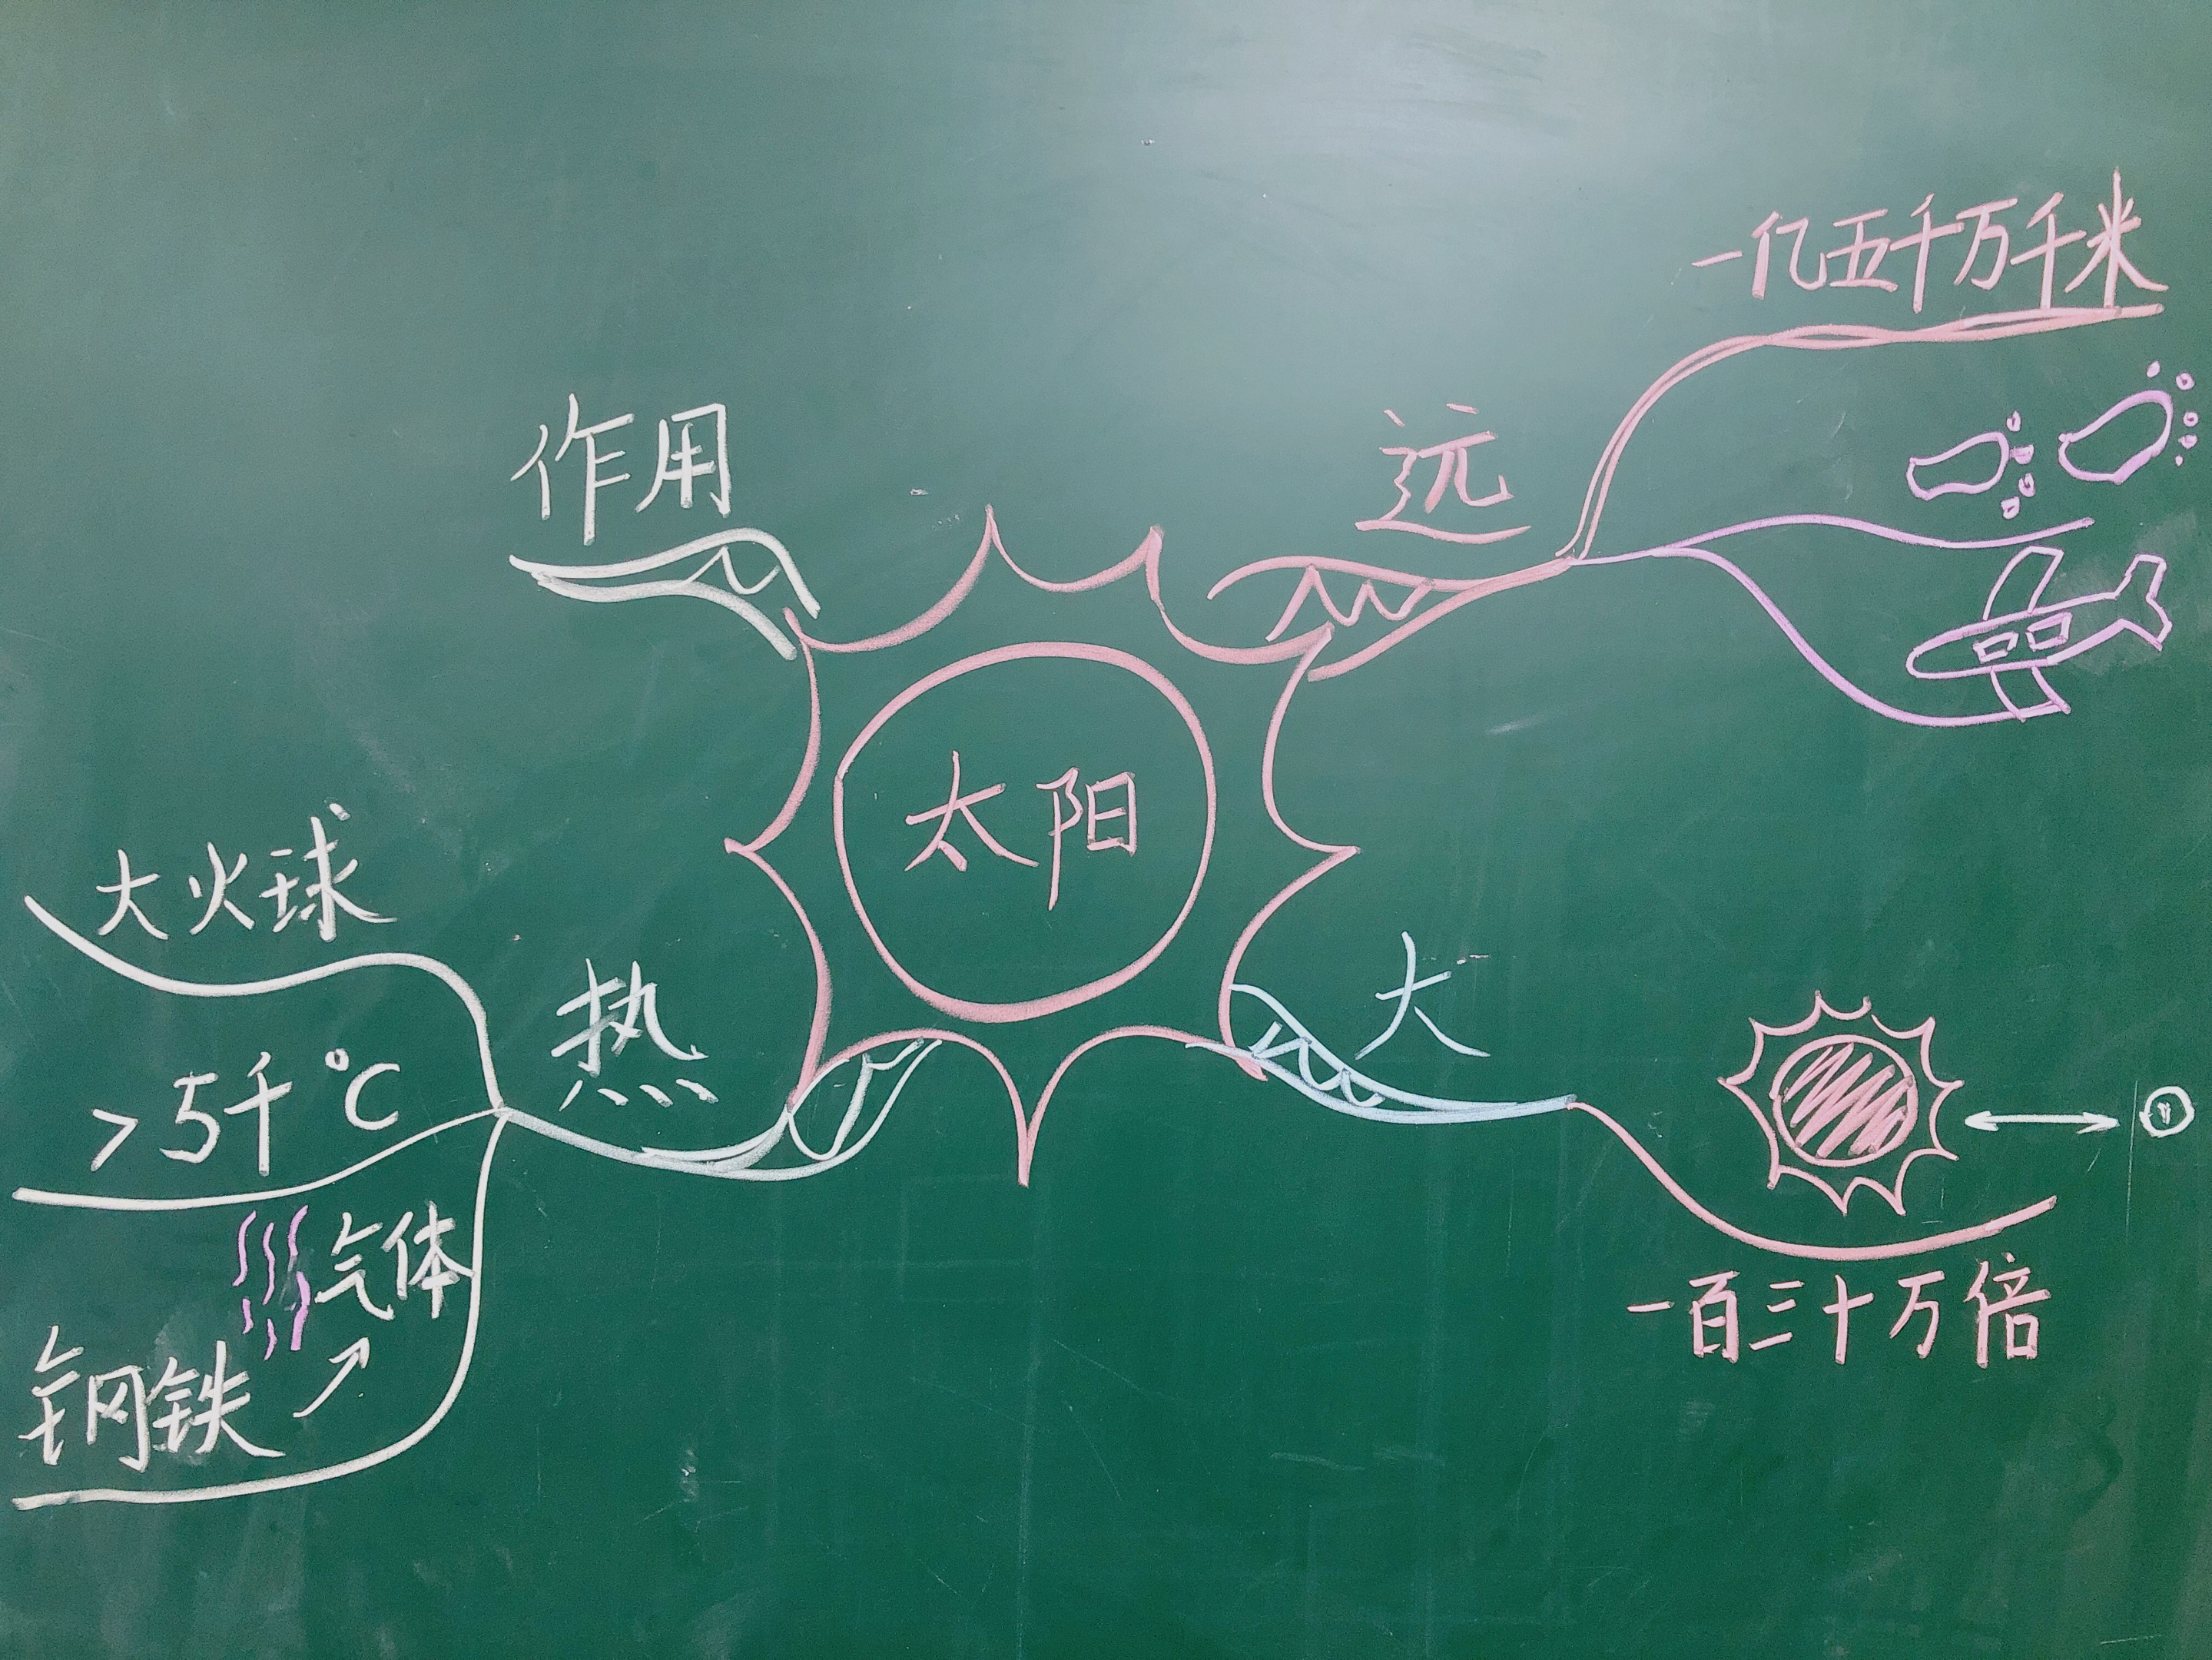 一亿五千万千米
作用
远
太阳
大火球
热
大
>5千℃
气体
钢铁
一百三十万倍